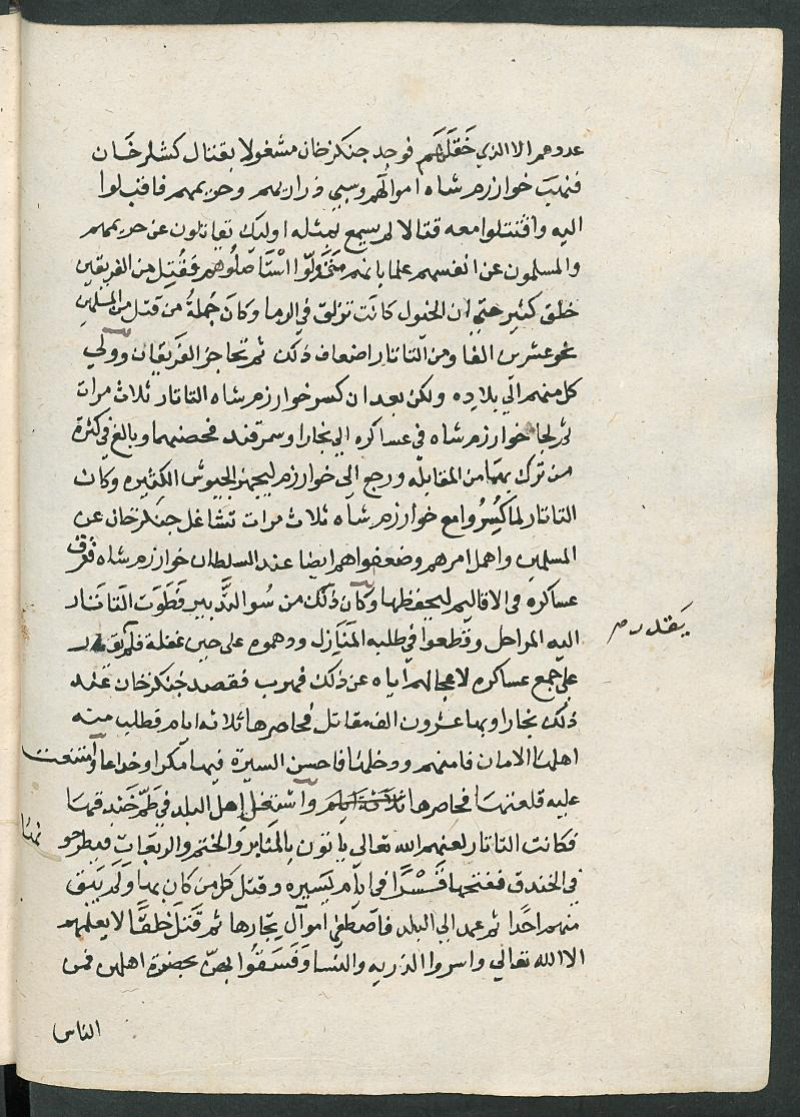 عددهم الا الذي خقلهم فوجد جنكزخان مشغولا بقتال كشلرخان
فنهب خوارزم شاه اموالهم وسبي ذراريهم وحريمهم فاقبلوا
اليه واقتتلوا معه قتالا لم يسمع بمثله اوليك يقاتلون عن حريمهم
والمسلمون عن انفسهم علما بانهم متي ولوا استاصلوهم فقتل من الفريقين
خلق كثير حتي ان الخيول كانت تزلق في الدما وكان جملة من قتل من المسلمين
نحو عشرين الفا ومن التاتار اضعاف ذلك ثم تحاجز الفريقان وولي
كل منهم الي بلاده ولكن بعد ان كسر خوارزم شاه التاتار ثلاث مرات
ثم لجا خوارزم شاه في عساكره الي بخارا وسمرقند فحصنهما وبالغ في كثرة
من ترك بهما من المقاتله ورجع الي خوارزم ليجهز الجيوش الكثيره وكان
التاتار لما كسروا مع خوارزم شاه ثلاث مرات تشاغل جنكزخان عن
المسلمين واهمل امرهم وضعفوا هم ايضا عند السلطان خوارزم شاه ففرق
عساكره في الاقاليم ليحفظها وكان ذلك من سو التدبير فطوت التاتار
اليه المراحل وقطعوا في طلبه المنازل ودهموه على حين غفلة فلم يقدر
يقدر
علي جمع عساكره لاعجالهم اياه عن ذلك فهرب فقصد جنكزخان عند
ذلك بخارا وبها عشرون الف مقاتل فحاصرها ثلاثه ايام فطلب منه
اهلها الامان فامنهم ودخلها فاحسن السيرة فيها مكرا وخداعا وامتنعت
عليه قلعتها فحاصرها واشتغل اهل البلد في طم خندقها
فكانت التاتار لعنهم الله تعالي ياتون بالمنابر والختم والربعات فيطرحونها
في الخندق ففتحها قسرا في ايام يسيره وقتل كل من كان بها ولم يبق
منهم احدا ثم عمد الي البلد فاصطفي اموال تجارها ثم قتل خلقا لا يعلمهم
الا الله تعالي واسروا الذريه والنسا وفسقوا بهن بحضرة اهلهن فمن
الناس